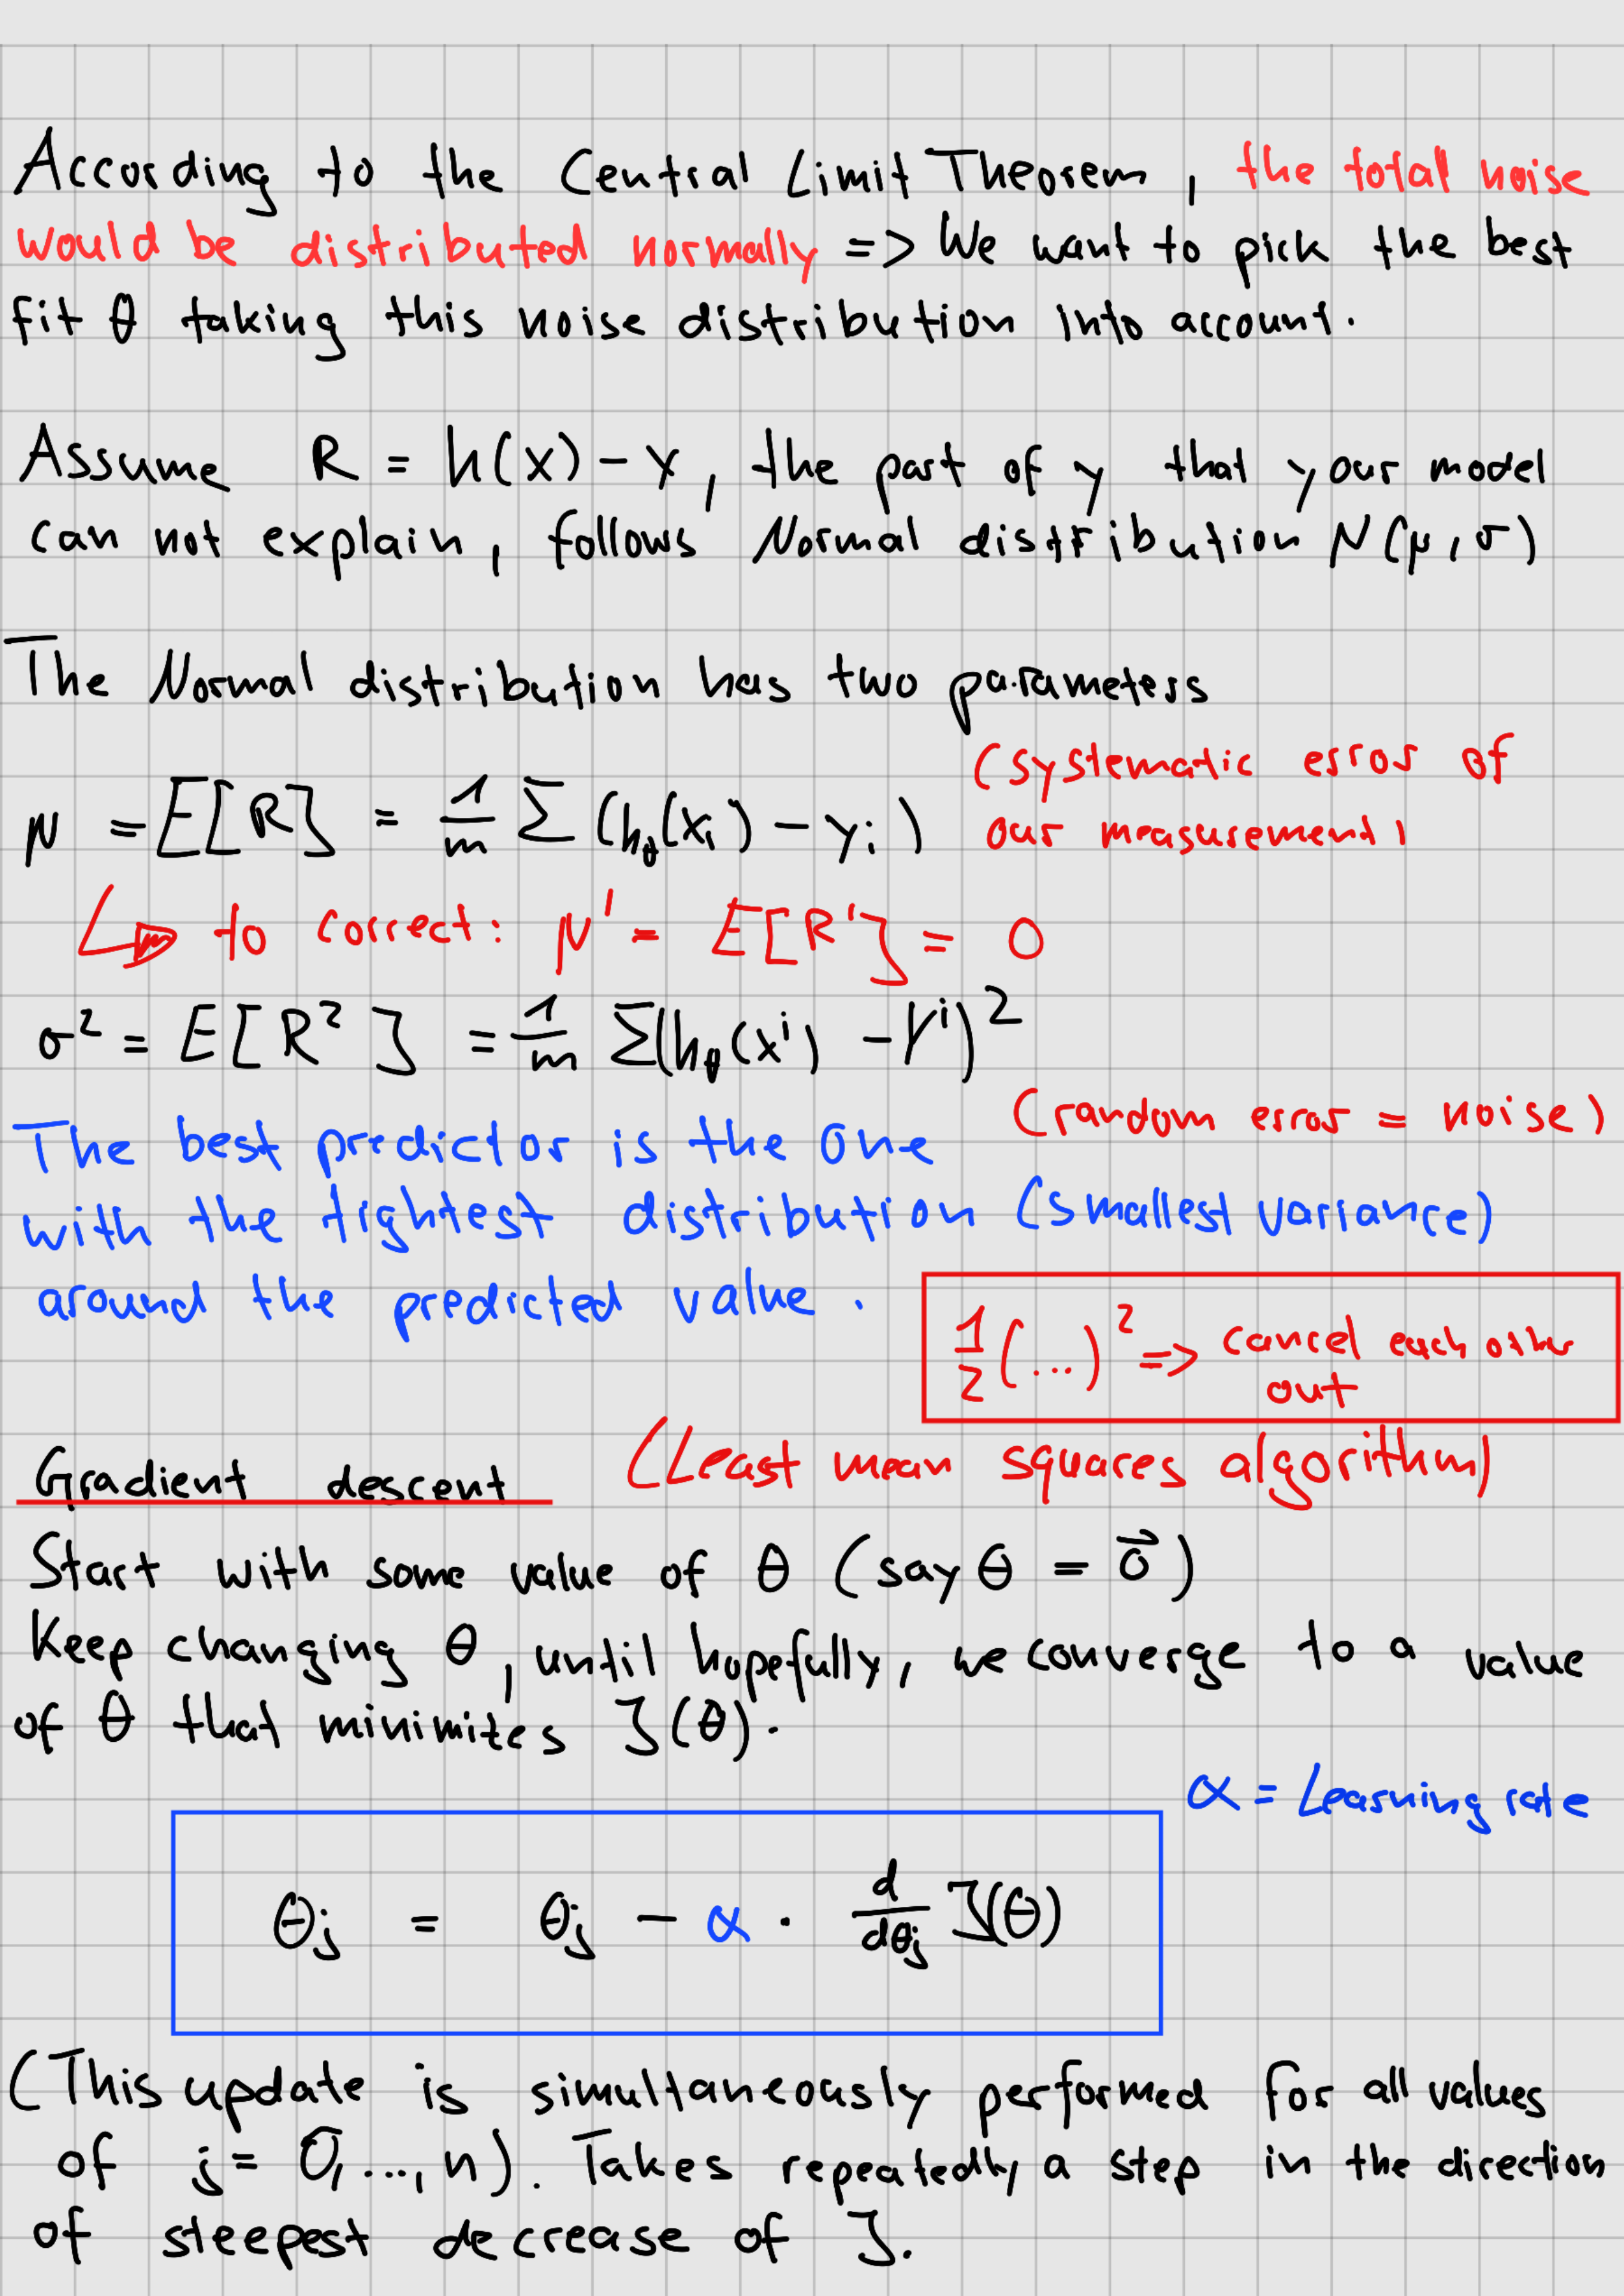 According to the Central Limit Theorem, the total noise
would be distributed normally => We want to pick the best
fit θ taking this noise distribution into account.
Assume R = h(x) - y, the part of y that your model
can not explain, follows Normal distribution N(μ, σ)
The Normal distribution has two parameters
μ = E[R] = 1/m Σ (hθ(xi) - yi) (systematic error of
our measurement)
↳ to correct: μ' = E[R'] = 0
σ² = E[R²] = 1/m Σ(hθ(x^i) - y^i)²
(random error = noise)
The best predictor is the one
with the tightest distribution (smallest variance)
around the predicted value.
1/2 (...)² => cancel each other
out
Gradient descent (Least mean squares algorithm)
Start with some value of θ (say θ = 0⃗)
Keep changing θ, until hopefully, we converge to a value
of θ that minimizes J(θ).
α = Learning rate
θj = θj - α · d/dθj J(θ)
(This update is simultaneously performed for all values
of j = 0, ..., n). Takes repeatedly a step in the direction
of steepest decrease of J.